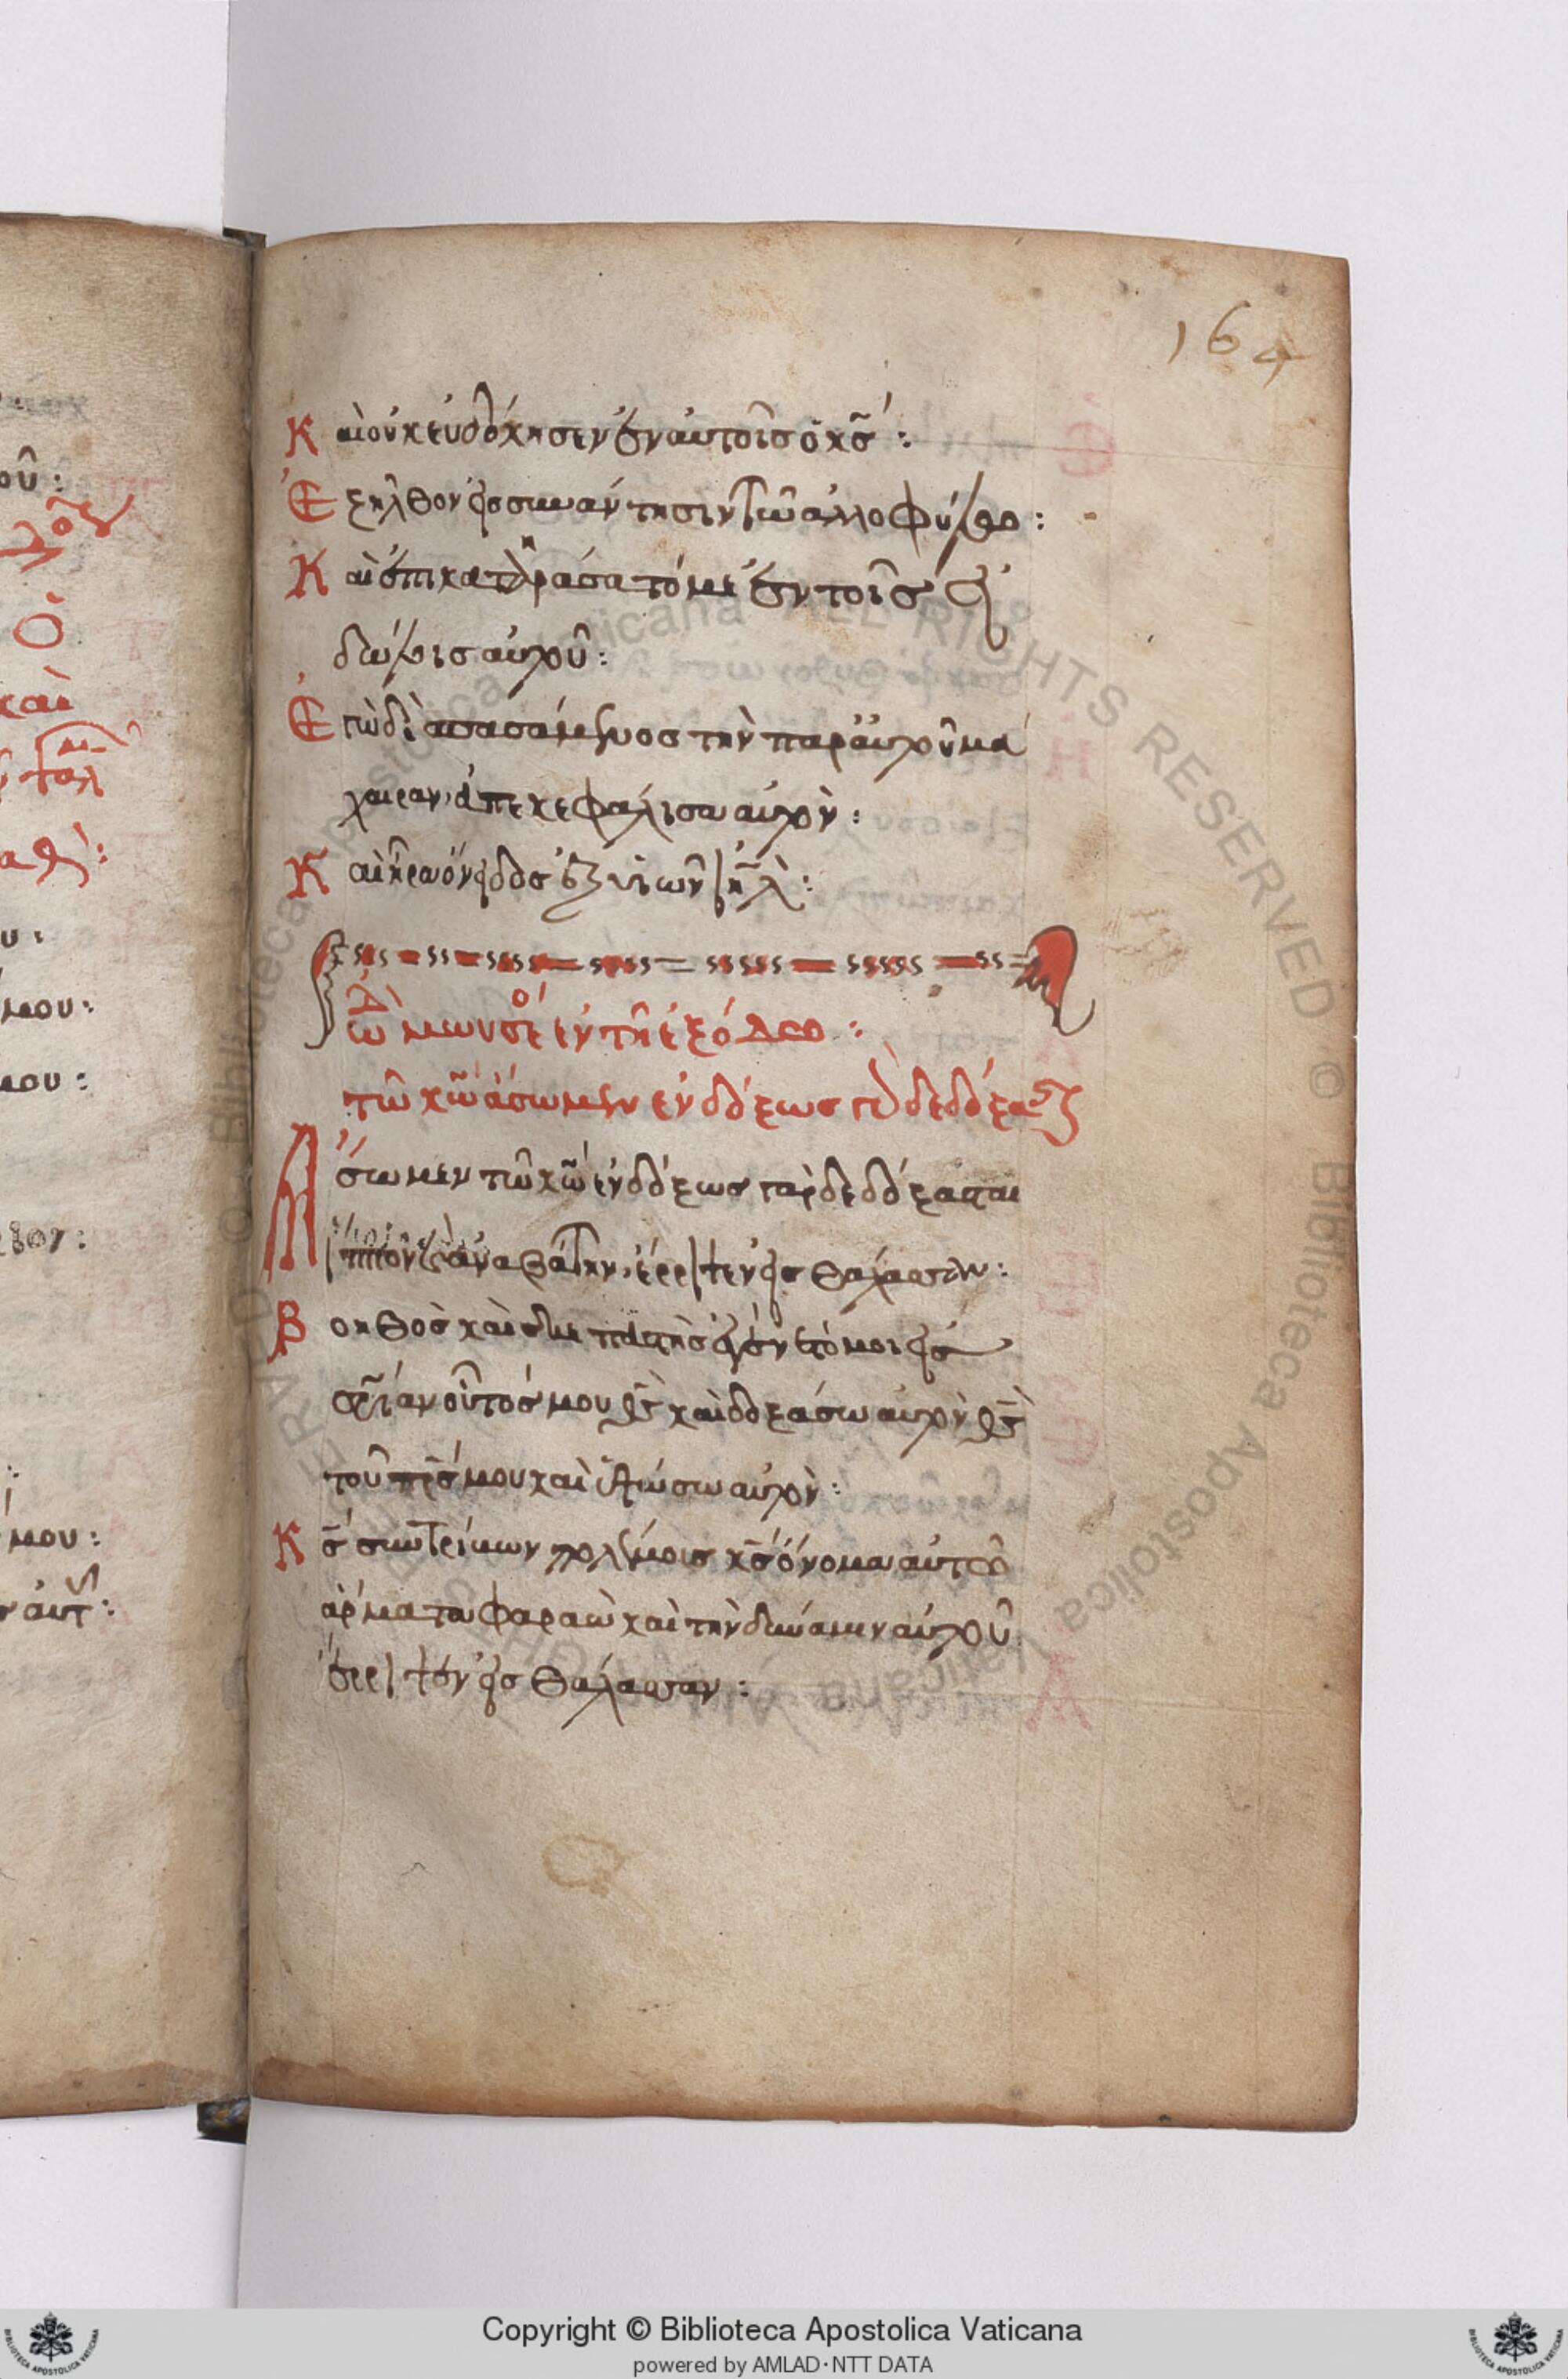 164
Καὶ οὐκ εὐδόκησεν ἐν αὐτοῖς ὁ κς:
Ἐξῆλθον εἰς συνάντησιν τῶ ἀλλοφύλω:
Καὶ ἐπικατηράσατό με ἐν τοῖς εἰ
δώλοις αὐτοῦ:
Ἐγὼ δὲ σπασάμενος τὴν παρ αὐτοῦ μά
χαιραν, ἀπεκεφάλισα αὐτὸν:
Καὶ ἦρα ὄνειδος ἐξ υἱῶν ιηλ:
ὠδὴ μωυσέ ἐν τῆ ἐξόδω:
τῶ κω ἄσωμεν ἐνδόξως γὰρ δεδόξασται
Ἄσωμεν τῶ κω ἐνδόξως γὰρ δεδόξασται
ἵππον καὶ ἀναβάτην, ἔρριψεν εἰς θάλασσαν:
Βοηθὸς καὶ σκεπαστὴς ἐγένετό μοι εἰς
σρίαν οὗτός μου θς καὶ δοξάσω αὐτὸν θς
τοῦ πρς μου καὶ ὑψώσω αὐτὸν:
Κς συντρίβων πολέμοις κς ὄνομα αὐτῶ
ἅρματα φαραὼ καὶ τὴν δύναμιν αὐτοῦ
ἔρριψεν εἰς θάλασσαν:
οῦ:
Ὁ
καὶ
υ:
μου:
μου:
μου:
Copyright © Biblioteca Apostolica Vaticana
powered by AMLAD·NTT DATA